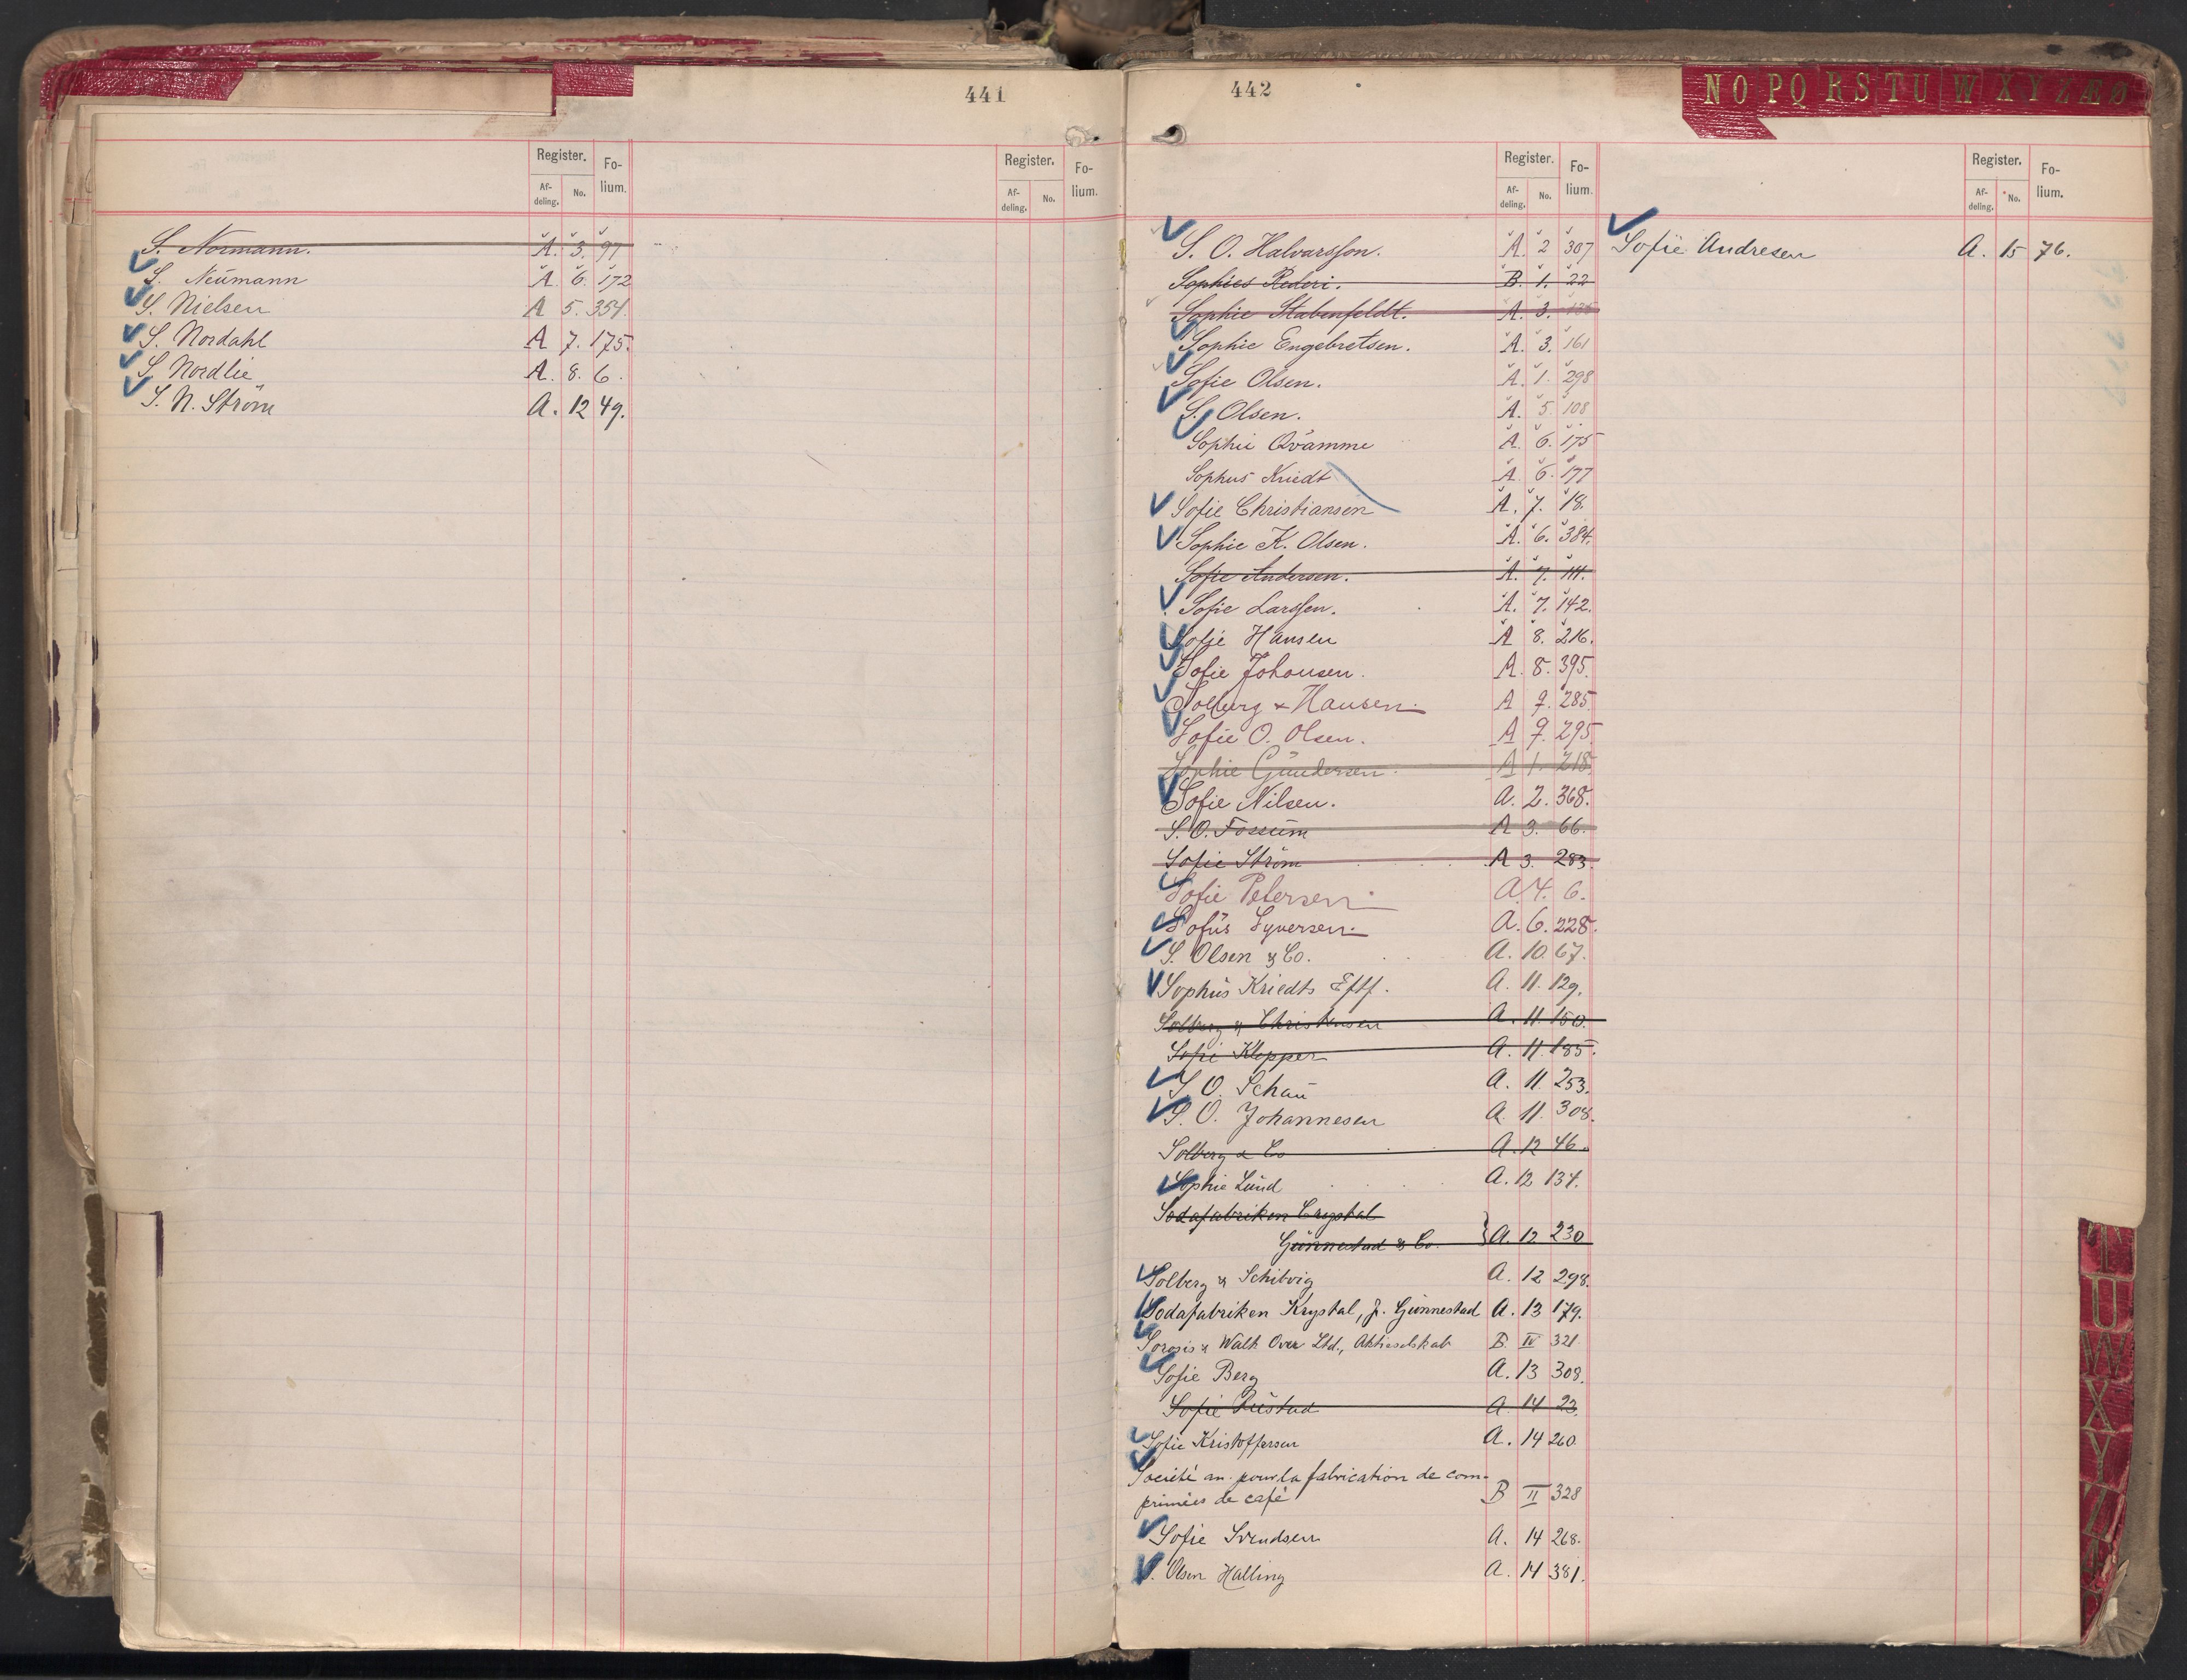 441
Register. Fo-
Af- No. lium.
deling.
Register. Fo-
Af- No. lium.
deling.
S. Normann. A. 3. 91
S. Neumann A. 6. 172
S. Nielsen A 5. 354.
S. Nordahl A 7. 175.
S. Nordlie A. 8. 6.
S. N. Strøm A. 12 49.
442
N O P Q R S T U W X Y Z Æ Ø
Register. Fo-
Af- No. lium.
deling.
Register. Fo-
Af- No. lium.
deling.
S. O. Halvarsson. A. 2 307
Sophies Rederi. B. 1. 22
Sophie Stabenfeldt. A. 3.
Sophie Engebretsen. A. 3. 161
Sofie Olsen. A. 1. 298
S. Olsen. A. 5. 108
Sophie Qvamme A. 6. 175
Sophus Kriedt A. 6. 177
Sofie Christiansen A. 7. 18.
Sophie K. Olsen. A. 6. 384.
Sofie Andersen. A. 7. 111.
Sofie Larssen. A. 7. 142.
Sofie Hansen A 8. 216.
Sofie Johansen. A. 8. 395.
Solberg & Hansen. A 9. 285.
Sofie O. Olsen. A 9. 295
Sophie Gundersen. A 1. 218.
Sofie Nilsen. A. 2. 368.
S. O. Fossum A 3. 66.
Sofie Strøm A 3. 283.
Sofie Petersen. A. 4. 6.
Sofus Syversen. A. 6. 228.
S. Olsen & Co. A. 10. 67.
Sophus Kriedts Eftf. A. 11. 129.
Solberg & Christensen A. 11. 150.
Sofie Klopper A. 11. 185.
S. O. Schau A. 11. 253.
S. O. Johannesen A. 11. 308.
Solberg & Co A. 12 46.
Sophie Lund A. 12 134.
Sodafabriken Crystal
Gunnestad & Co. } A. 12 230
Solberg & Schibvig A. 12 298.
Sodafabriken Krystal, J. Gunnestad A. 13 179.
Sorosis & Walk Over Ltd., Aktieselskab B. IV 321
Sofie Berg A. 13 308.
Sofie Rustad A. 14 23.
Sofie Kristoffersen A. 14 260.
Société an. pour la fabrication de com-
primées de café B II 328
Sofie Svendsen A. 14 268.
S. Olsen Halling A. 14 381.
Sofie Andresen A. 15 76.
T
U
W
X
Y
Z